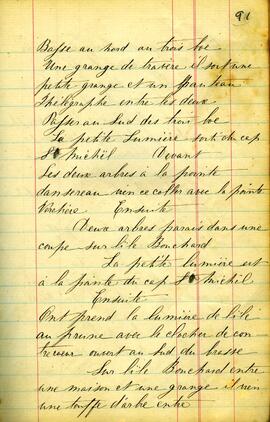 91
Basse au nord au trois boé
Une grange de travère il sort une
petite grange et un
Thélégraphe entre les deux
Passer au Sud des trois boé
La petite Lumière sorti du cap
St Michël Devant
Les deux arbres à la pointe
dansereau vien ce coller avec la pointe
Ensuite
Deux arbres parais dans une
coupe sur l'ile Bouchard
La petite lumière est
à la pointe du cap St Michel
Ensuite
Ont prend la lumière de l'ile
au prune avec le clocher de con-
trecoeur ouvert au sud du brasse
Sur l'ile Bouchard entre
une maison et une grange il vien
une touffe d'arbre entre